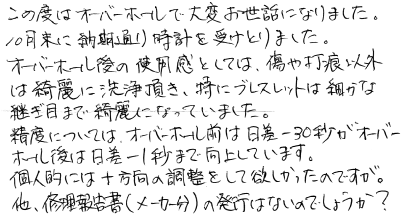 この度はオーバーホールで大変お世話になりました。
10月末に納期通り時計を受けとりました。
オーバーホール後の使用感としては、傷や打痕以外
は綺麗に洗浄頂き、特にブレスレットは細かな
継ぎ目まで綺麗になっていました。
精度については、オーバーホール前は日差-30秒がオーバー
ホール後は日差-1秒まで向上しています。
個人的には+方向の調整をして欲しかったのですが。
他、修理報告書(メーカー分)の発行はないのでしょうか?